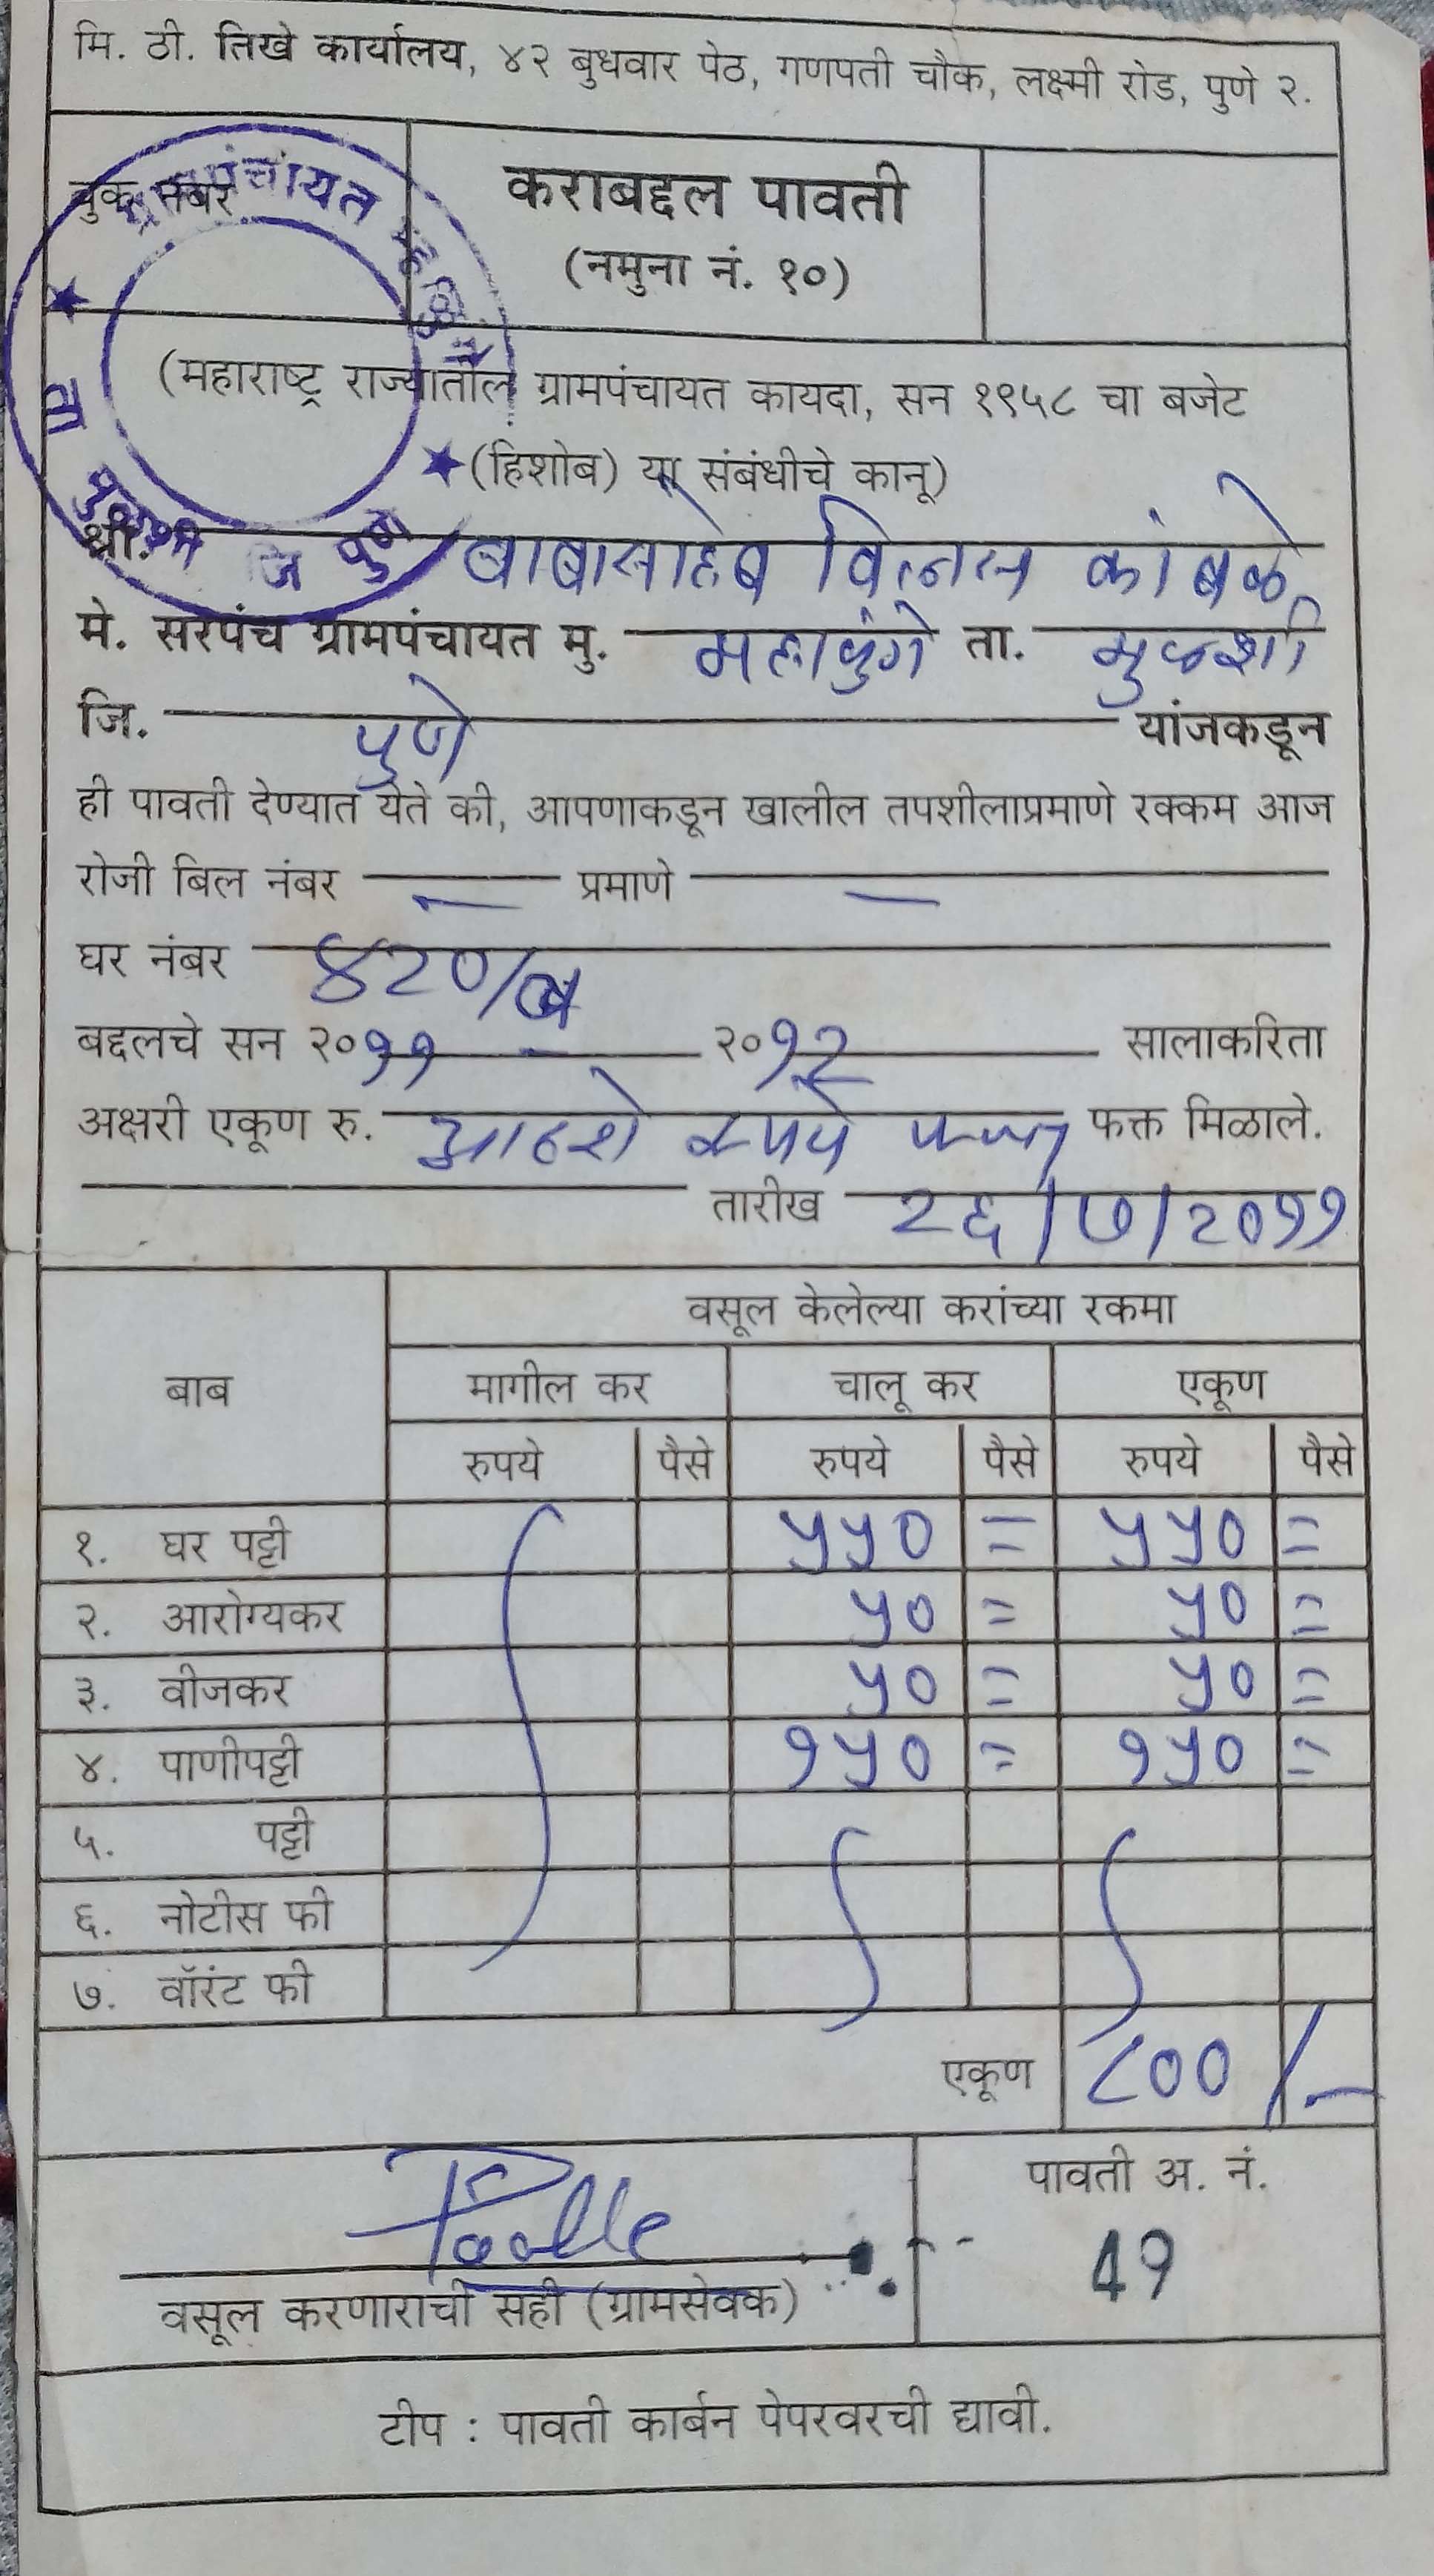 मि. ठी. तिखे कार्यालय, ४२ बुधवार पेठ, गणपती चौक, लक्ष्मी रोड, पुणे २.
बुक नंबर
कराबद्दल पावती
(नमुना नं. १०)
(महाराष्ट्र राज्यातील ग्रामपंचायत कायदा, सन १९५८ चा बजेट
(हिशोब) या संबंधीचे कानू)
श्री. बाबासाहेब विलास कांबळे
मे. सरपंच ग्रामपंचायत मु. महाळुंगे ता. मुळशी
जि. पुणे यांजकडून
ही पावती देण्यात येते की, आपणाकडून खालील तपशीलाप्रमाणे रक्कम आज
रोजी बिल नंबर — प्रमाणे —
घर नंबर ४२०/ब
बद्दलचे सन २०११ - २०१२ सालाकरिता
अक्षरी एकूण रु. आठशे रुपये फक्त फक्त मिळाले.
तारीख २६/७/२०११
बाब वसूल केलेल्या करांच्या रकमा
मागील कर चालू कर एकूण
रुपये पैसे रुपये पैसे रुपये पैसे
१. घर पट्टी ५५० = ५५० =
२. आरोग्यकर ५० = ५० =
३. वीजकर ५० = ५० =
४. पाणीपट्टी १५० = १५० =
५. पट्टी
६. नोटीस फी
७. वॉरंट फी
एकूण ८००/-
पावती अ. नं.
49
वसूल करणाराची सही (ग्रामसेवक)
टीप : पावती कार्बन पेपरवरची द्यावी.